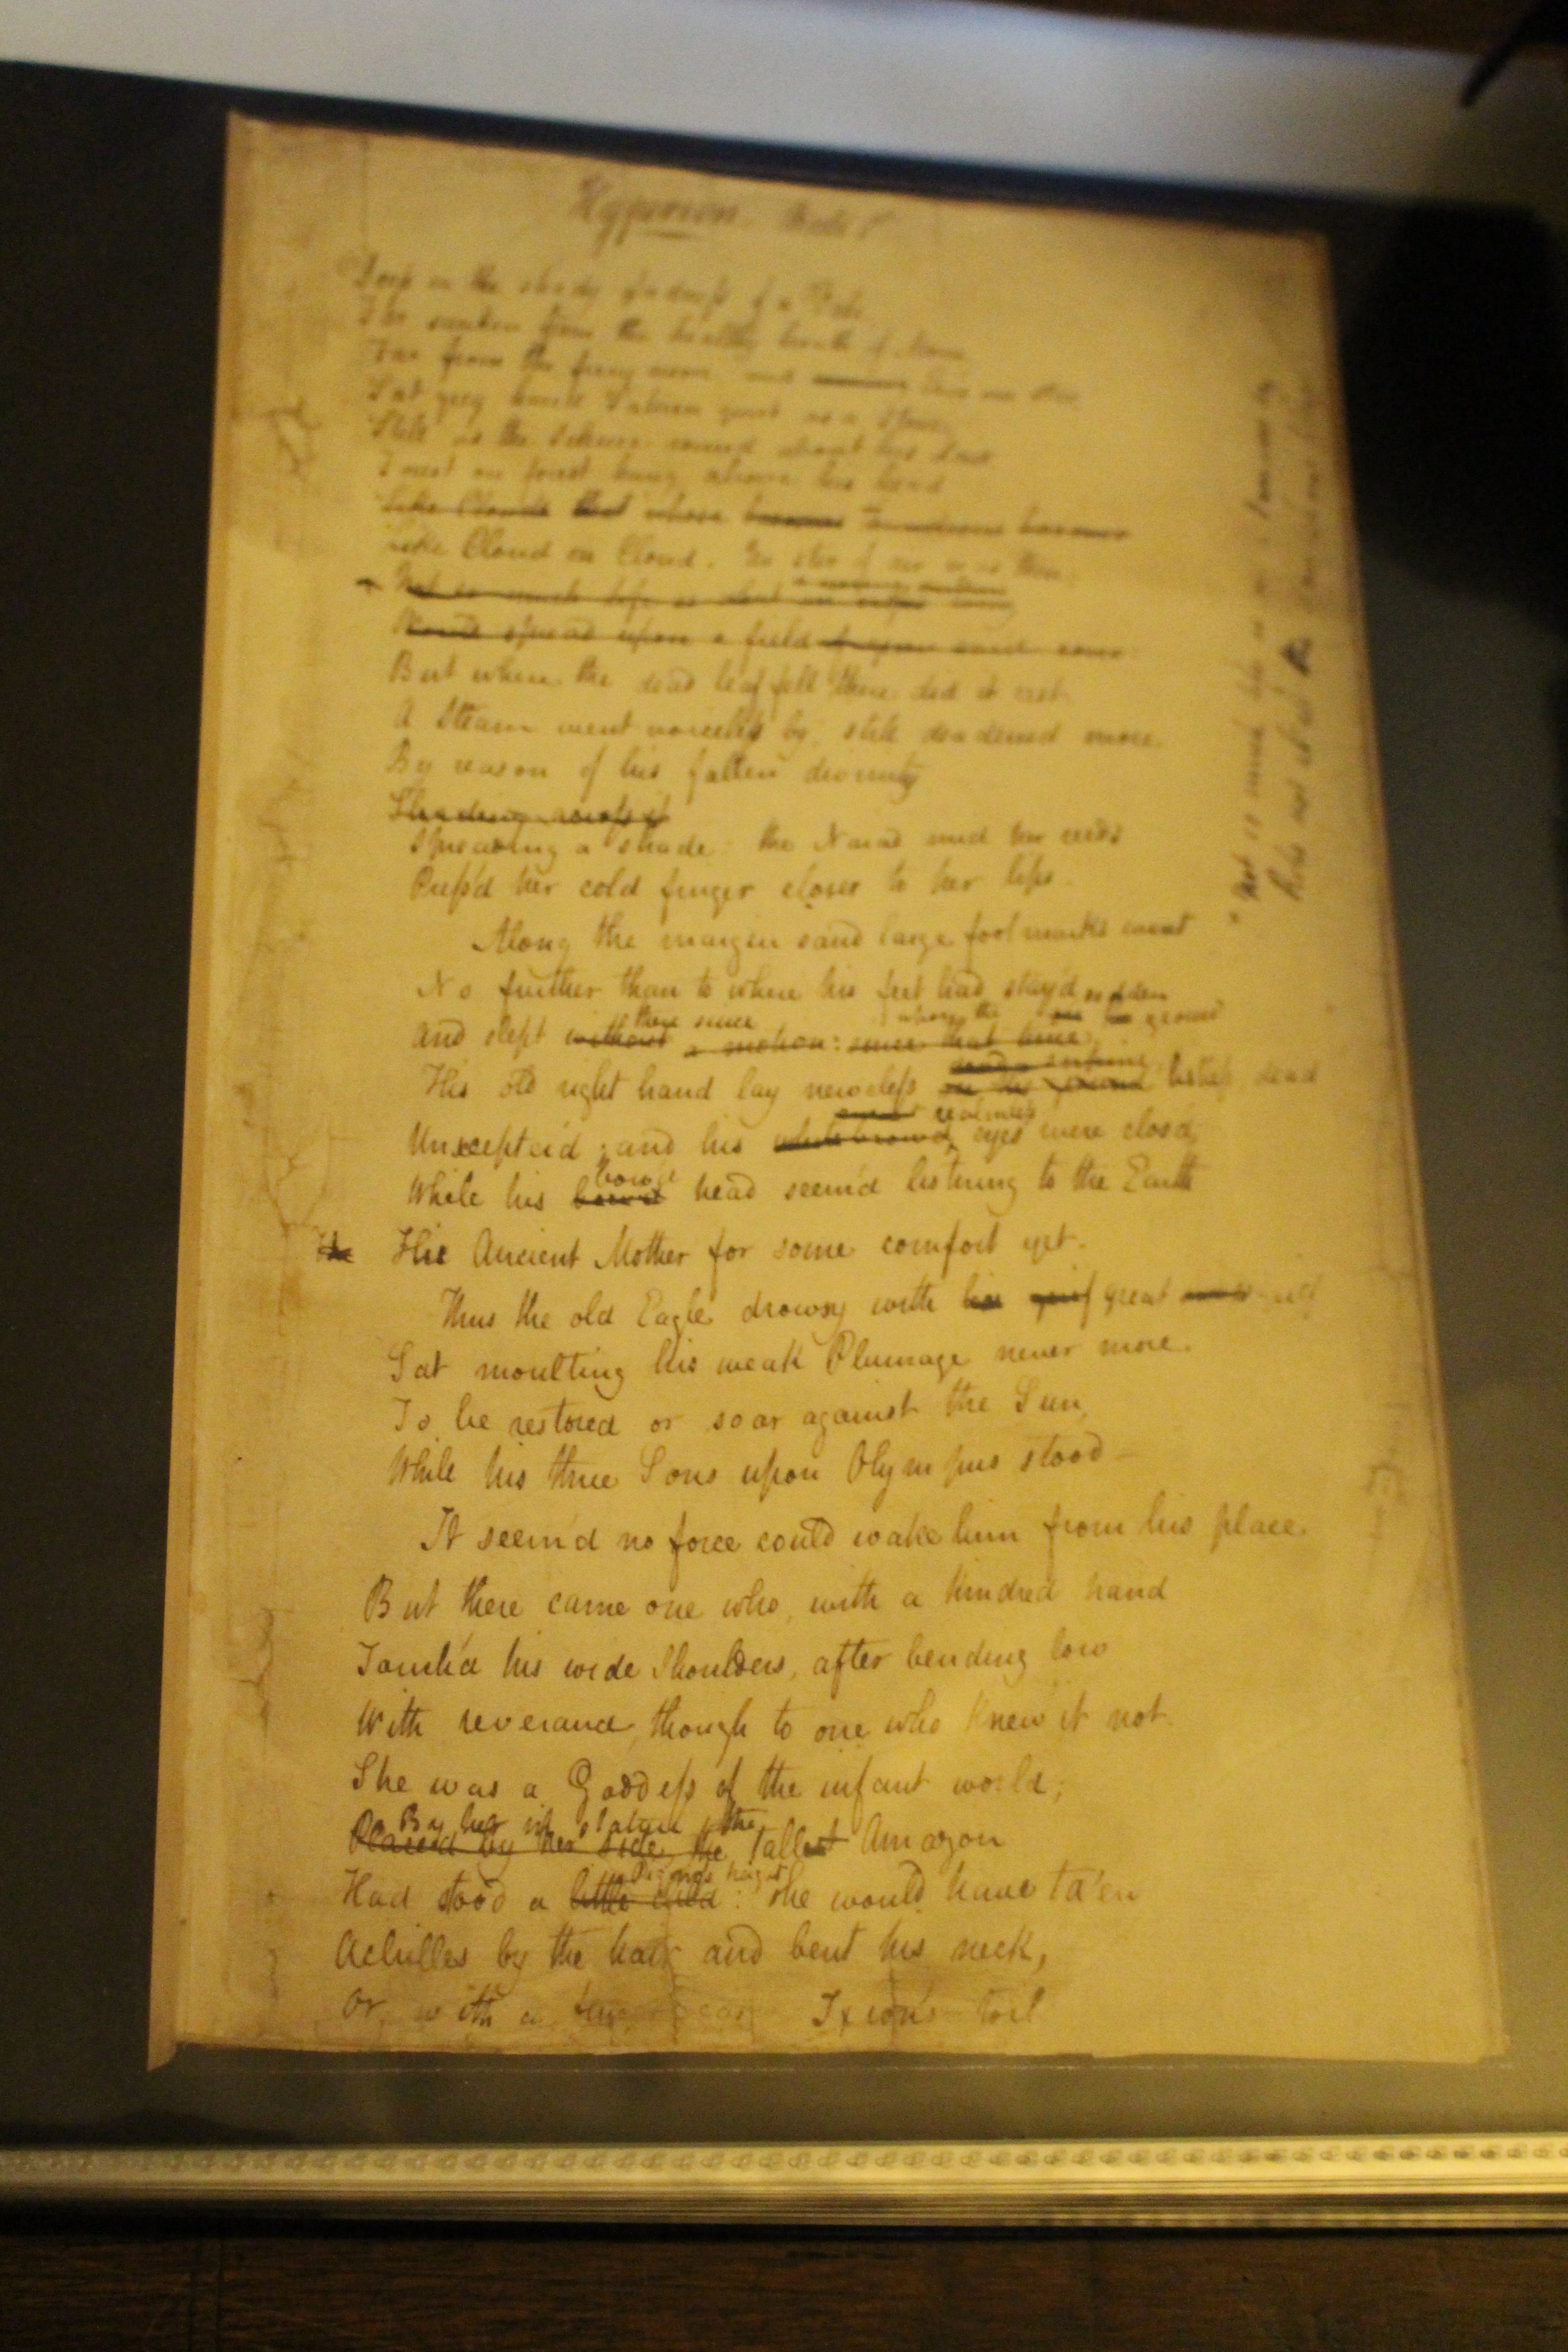 Hyperion Book 1
Deep in the shady sadness of a Vale
Far sunken from the healthy breath of Morn,
Far from the fiery noon and eve's one star
Sat grey hair'd Saturn quiet as a stone,
Still as the silence round about his Lair
Forest on forest hung above his head
Like Clouds that whose bosoms
Like Cloud on Cloud. No stir of air was there
Not so much life as what
spread upon a field
But where the dead leaf fell there did it rest.
A Stream went voiceless by, still deadened more
By reason of his fallen divinity
Spreading a shade: the Naiad mid her reeds
Press'd her cold finger closer to her lips.
Along the margin sand large footmarks went
No further than to where his feet had stay'd
sodden
there since where the ground
And slept without a motion: since that time
His old right hand lay nerveless on the ground listless dead
realmless
Unsceptered; and his white brow'd eyes were closd,
bow'd
While his head seem'd listening to the Earth
His Ancient Mother for some comfort yet.
Thus the old Eagle drowsy with his grief great
Sat moulting his weak Plumage never more.
To be restored or soar against the Sun,
While his three Sons upon Olympus stood—
It seem'd no force could wake him from his place
But there came one who, with a kindred hand
Touch'd his wide Shoulders, after bending low
With reverance, though to one who knew it not.
She was a Goddess of the infant world;
By her in stature the
Placed by her side, the Tallest Amazon
Pigmy's height
Had stood a little child: she would have ta'en
Achilles by the hair and bent his neck,
or with a Ixion's toil
Not so much life